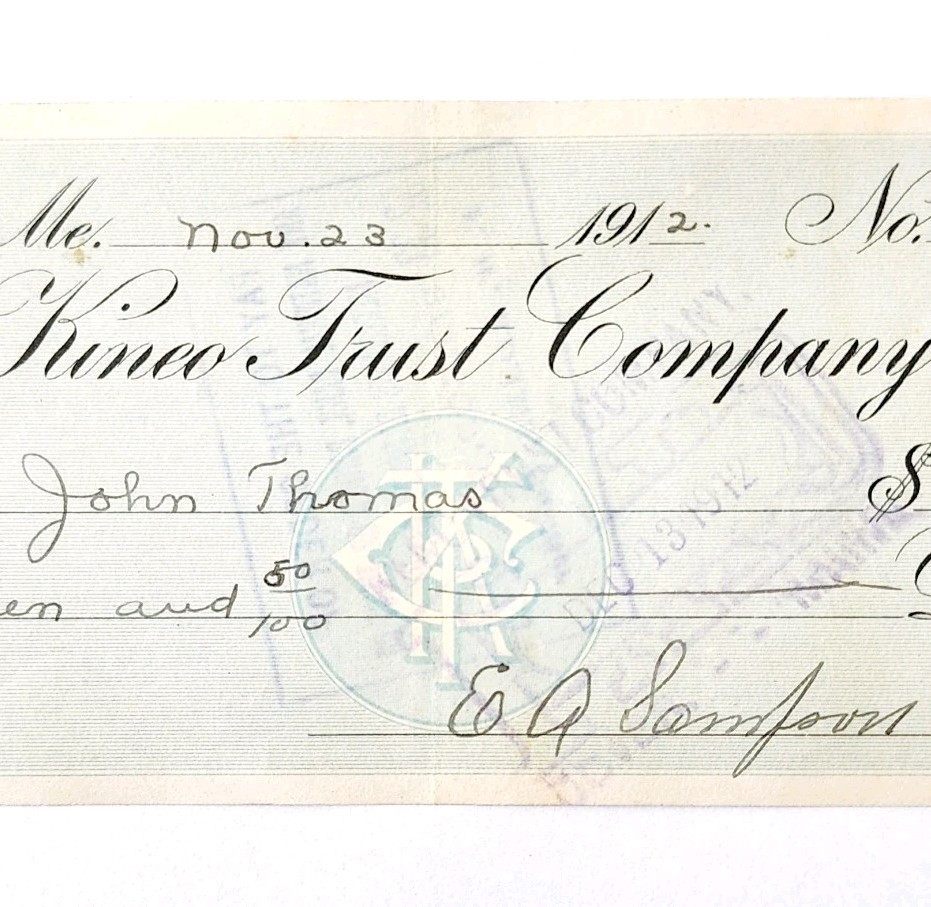 Me. Nov. 23 1912. No.
Kineo Trust Company
John Thomas $
en and 50/100
E A Sampson
DEC 13 1912